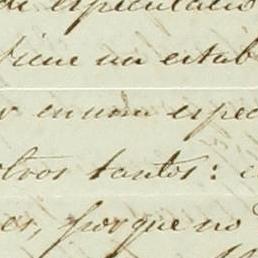 de especulacio
viene un estab
en una espec
otros tantos:
es, porque no